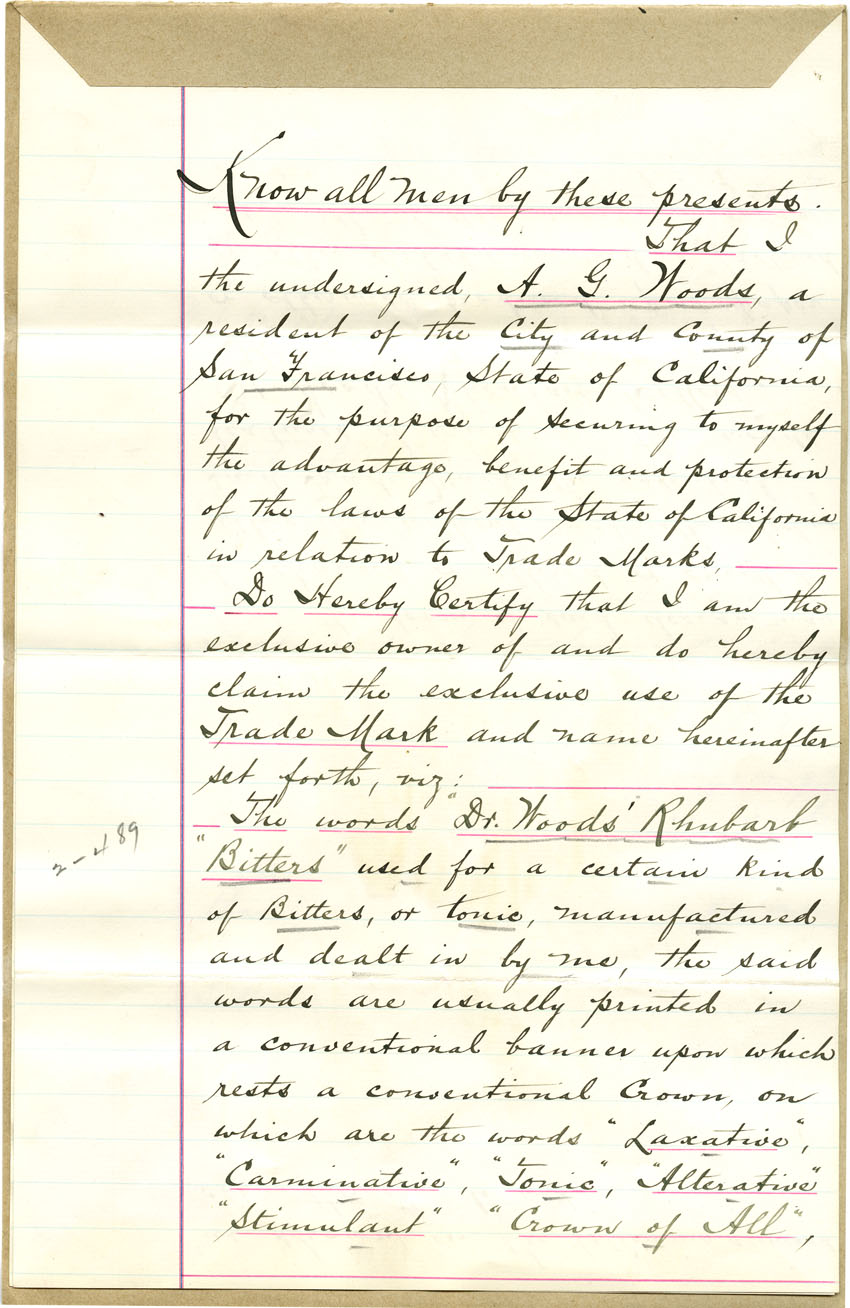 Know all men by these presents.
That I
the undersigned, A. G. Woods, a
resident of the City and County of
San Francisco, State of California,
for the purpose of securing to myself
the advantage, benefit and protection
of the laws of the State of California
in relation to Trade Marks,
Do Hereby Certify that I am the
exclusive owner of and do hereby
claim the exclusive use of the
Trade Mark and name hereinafter
set forth, viz:
The words "Dr. Woods' Rhubarb
"Bitters" used for a certain kind
of Bitters, or tonic, manufactured
and dealt in by me, the said
words are usually printed in
a conventional banner upon which
rests a conventional Crown, on
which are the words "Laxative",
"Carminative", "Tonic", "Alterative"
"Stimulant" "Crown of All",
2-489